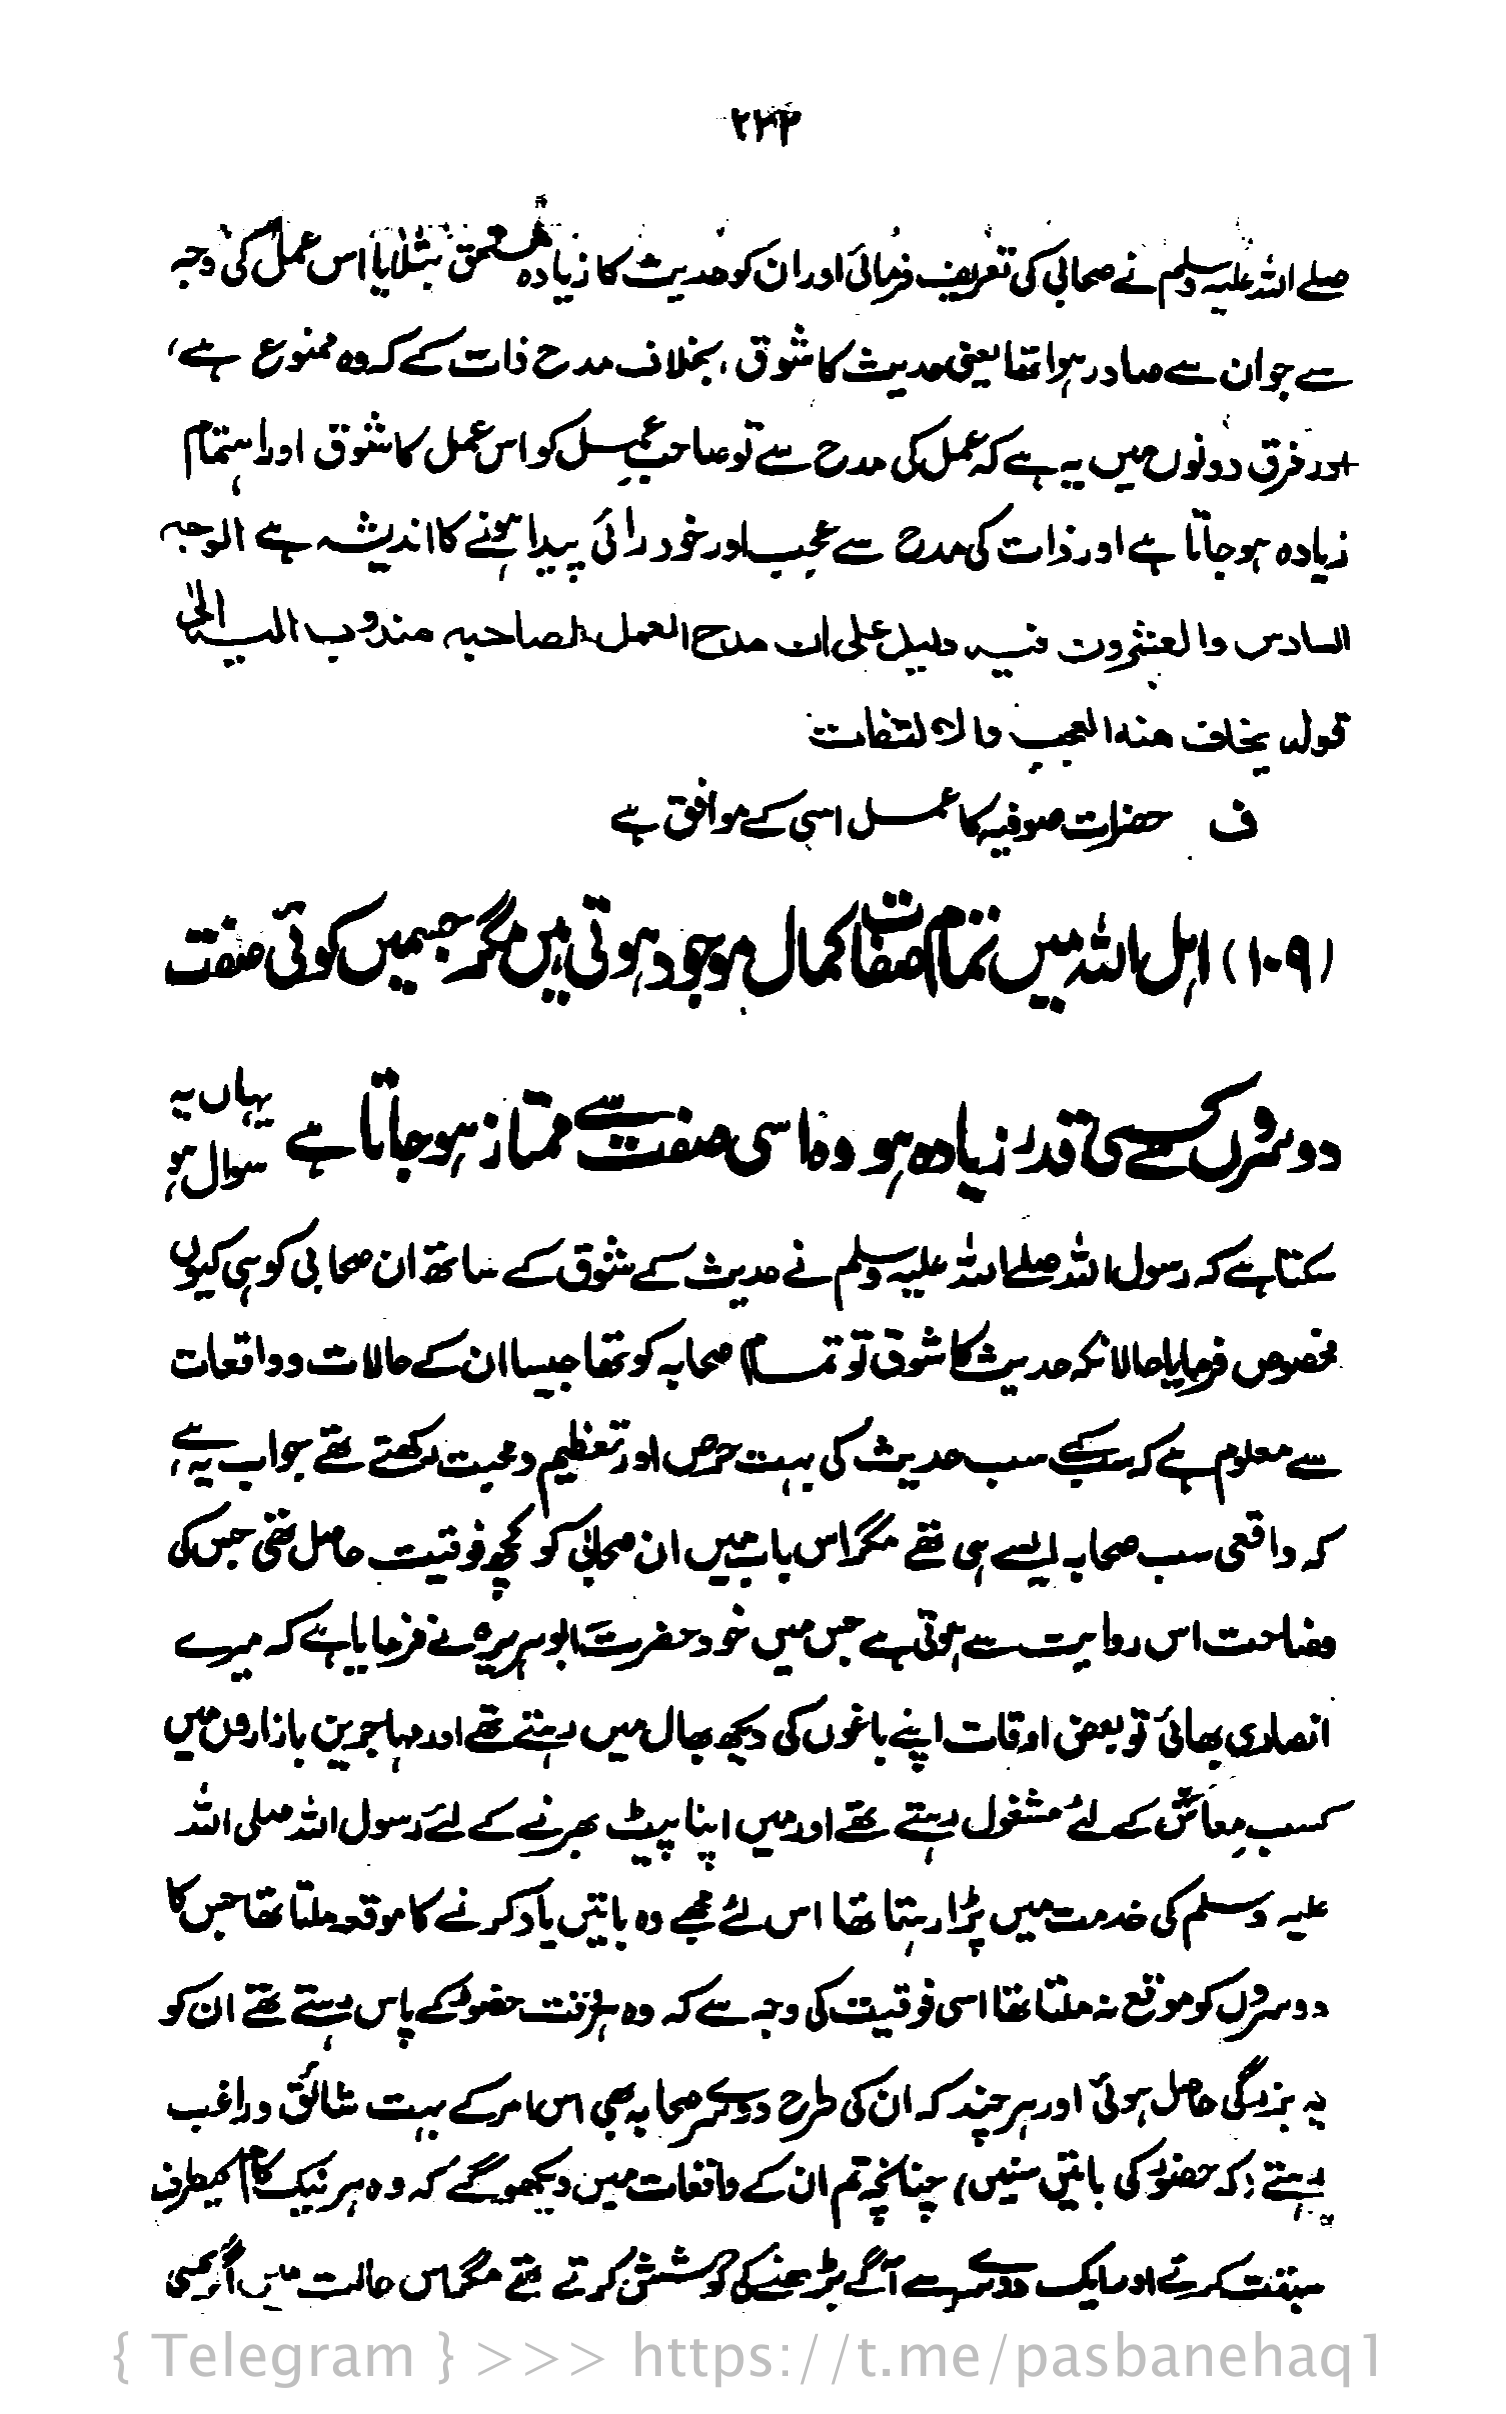 ۲۲۲
صلے اللہ علیہ وسلم نے صحابی کی تعریف فرمائی اور ان کو حدیث کا زیادہ مستحق بتلایا اس عمل کی وجہ
سے جو ان سے صادر ہوا تھا یعنی حدیث کا شوق، بخلاف مدح ذات کے کہ وہ ممنوع ہے،
اور فرق دونوں میں یہ ہے کہ عمل کی مدح سے تو صاحب عمل کو اس عمل کا شوق اور اہتمام
زیادہ ہو جاتا ہے اور ذات کی مدح سے عجب اور خود رائی پیدا ہونے کا اندیشہ ہے الوجہ
السادس والعشرون فیہ دلیل علی ان مدح العمل لصاحبہ مندوب الیہ الیٰ
قولہ یخاف منہ العجب والالتفات
ف حضرات صوفیہ کا عمل اسی کے موافق ہے
(۱۰۹) اہل اللہ میں تمام صفات کمال موجود ہوتی ہیں مگر جسمیں کوئی صفت
دوسروں سے کسی قدر زیادہ ہو وہ اسی صفت سے ممتاز ہو جاتا ہے یہاں یہ سوال ہو
سکتا ہے کہ رسول اللہ صلے اللہ علیہ وسلم نے حدیث کے شوق کے ساتھ ان صحابی کو ہی کیوں
مخصوص فرمایا حالانکہ حدیث کا شوق تو تمام صحابہ کو تھا جیسا ان کے حالات و واقعات
سے معلوم ہے کہ سب کے سب حدیث کی بہت حرص اور تعظیم و محبت رکھتے تھے جواب یہ ہے
کہ واقعی سب صحابہ ایسے ہی تھے مگر اس باب میں ان صحابی کو کچھ فوقیت حاصل تھی جس کی
وضاحت اس روایت سے ہوتی ہے جس میں خود حضرت ابوہریرہ نے فرمایا ہے کہ میرے
انصاری بھائی تو بعض اوقات اپنے باغوں کی دیکھ بھال میں رہتے تھے اور مہاجرین بازاروں میں
کسب معاش کے لئے مشغول رہتے تھے اور میں اپنا پیٹ بھرنے کے لئے رسول اللہ صلی اللہ
علیہ وسلم کی خدمت میں پڑا رہتا تھا اس لئے مجھے وہ باتیں یاد کرنے کا موقعہ ملتا تھا جس کا
دوسروں کو موقع نہ ملتا تھا اسی فوقیت کی وجہ سے کہ وہ ہر وقت حضور کے پاس رہتے تھے ان کو
یہ بزرگی حاصل ہوئی اور ہر چند کہ ان کی طرح دوسرے صحابہ بھی اس امر کے بہت شائق و راغب
رہتے (کہ حضور کی باتیں سنیں) چنانچہ تم ان کے واقعات میں دیکھو گے کہ وہ ہر نیک کام کیطرف
سبقت کرتے اور ایک دوسرے سے آگے بڑھنے کی کوشش کرتے تھے مگر اس حالت میں اگر کسی
{ Telegram } >>> https://t.me/pasbanehaq1